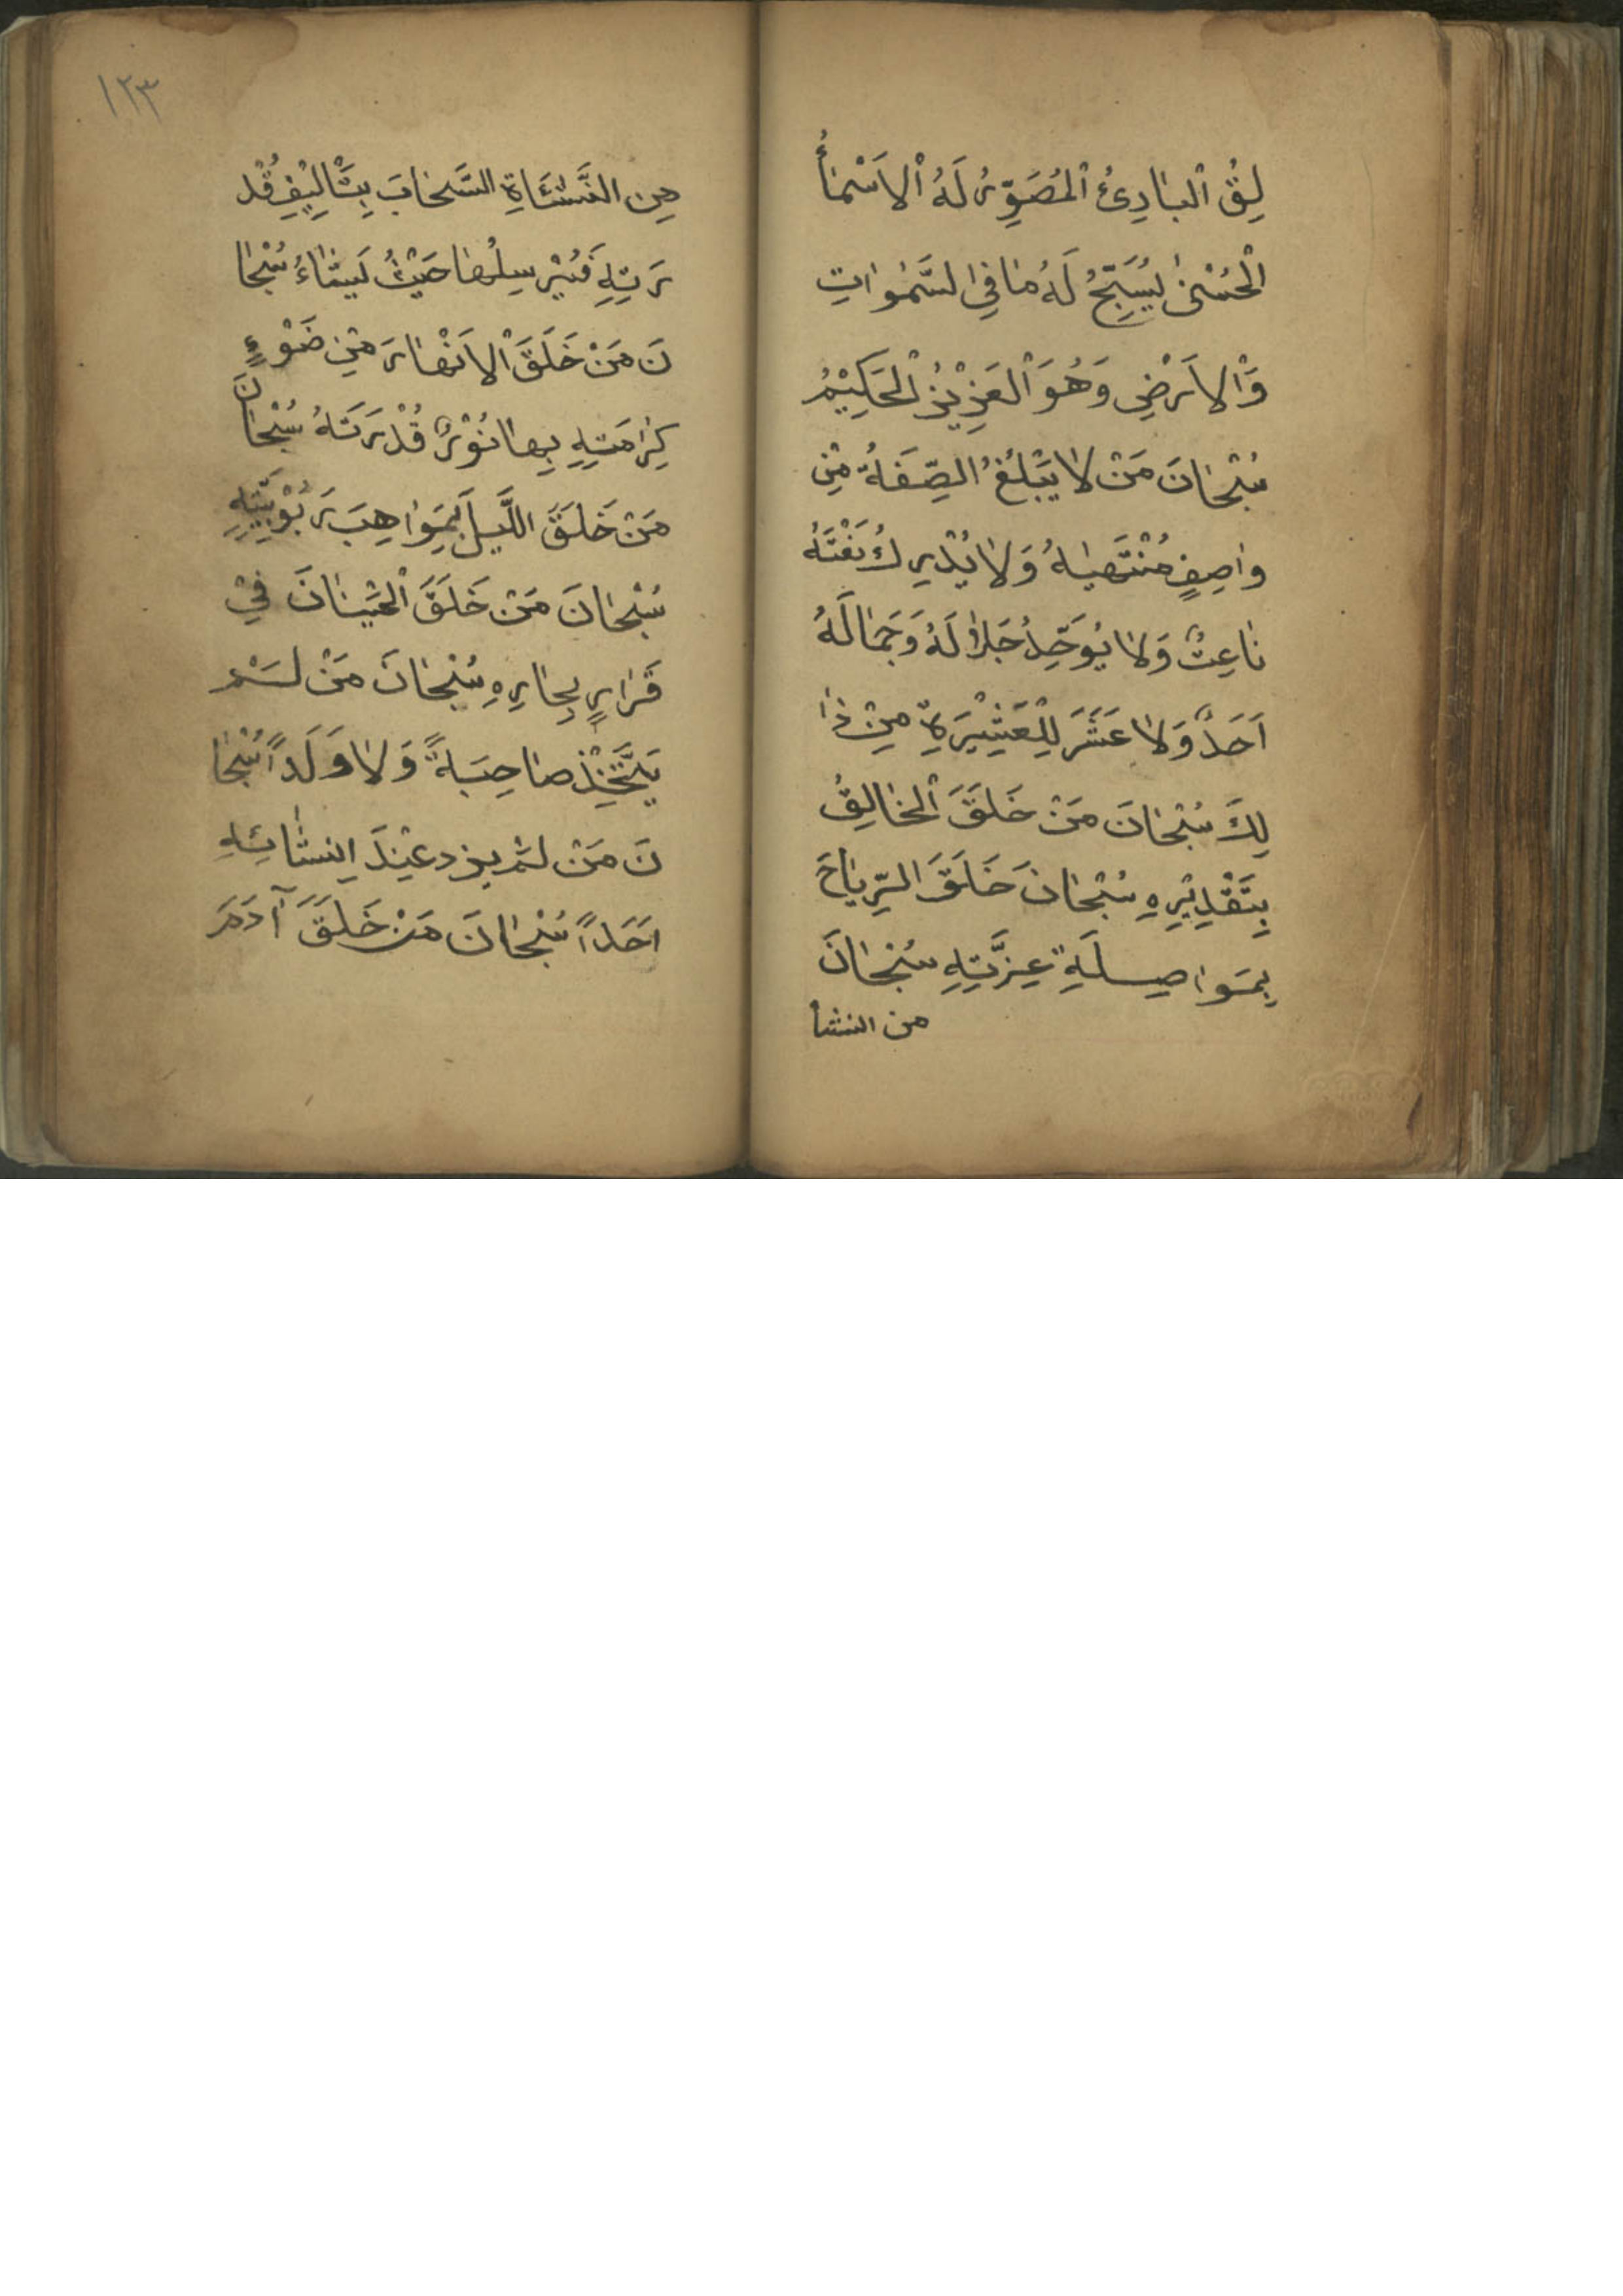 لِقُ الْبَارِئُ الْمُصَوِّرُ لَهُ الْاَسْمَأُ
الْحُسْنٰى يُسَبِّحُ لَهُ مَا فِي السَّمٰوَاتِ
وَالْاَرْضِ وَهُوَ الْعَزِيْزُ الْحَكِيْمُ
سُبْحَانَ مَنْ لَا يَبْلُغُ الصِّفَةُ مِنْ
وَاصِفٍ مُنْتَهَيَاهُ وَلَا يُدْرِكُ نَعْتَهُ
نَاعِتٌ وَلَا يُوَحِّدُ جَلَالَهُ وَجَمَالَهُ
اَحَدٌ وَلَا عَشَرَ لِلْعَشِيْرَةِ مِنْ ذَا
لِكَ سُبْحَانَ مَنْ خَلَقَ الْخَالِقُ
بِتَقْدِيْرِهِ سُبْحَانَ خَلَقَ الرِّيَاحَ
بِمَوَاصِلَةِ عِزَّتِهِ سُبْحَانَ
من النشا
١٢٣
مِن النَّشَاَةِ السَّحَابَ بِتَاْلِيْفِ قُدْ
رَتِهِ فَيُرْسِلُهَا حَيْثُ يَشَاءُ سُبْحَا
نَ مَنْ خَلَقَ الْاَنْهَارَ مِنْ ضَوْءٍ
كِرَامَتِهِ بِهَا نُوْرٌ قُدْرَتَهُ سُبْحَانَ
مَنْ خَلَقَ اللَّيْلَ بِمَوَاهِبَ رَبُوْبِيَّتِهِ
سُبْحَانَ مَنْ خَلَقَ الْحَيْتَانَ فِيْ
قَرَارٍ بِحَارِهِ سُبْحَانَ مَنْ لَمْ
يَتَّخِذْ صَاحِبَةً وَلَا وَلَداً سُبْحَا
نَ مَنْ لَمْ يزد عِنْدَ اِنشَائِهِ
اَحَداً سُبْحَانَ مَنْ خَلَقَ آدَمَ